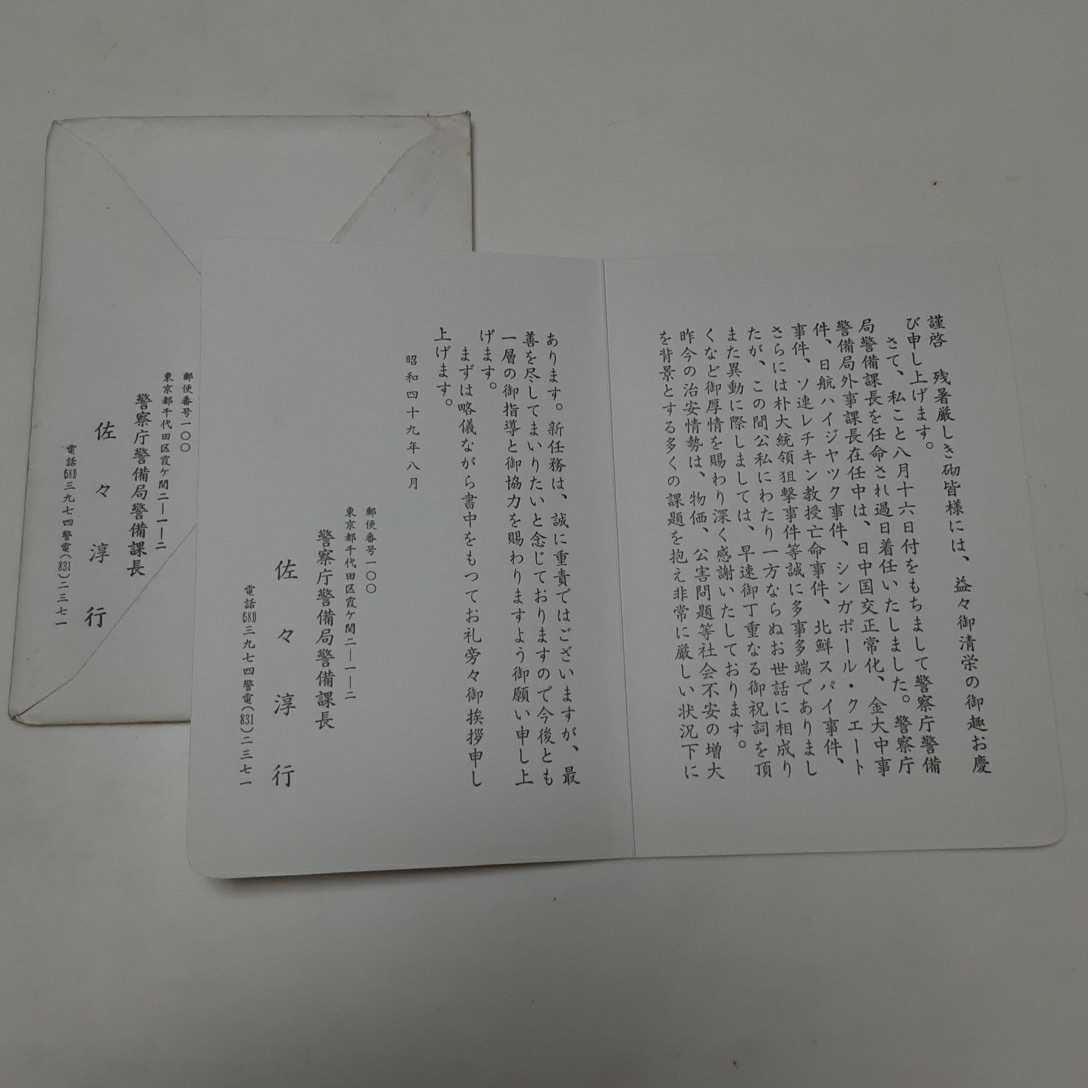 謹啓　残暑厳しき砌皆様には、益々御清栄の御趣お慶
び申し上げます。
さて、私こと八月十六日付をもちまして警察庁警備
局警備課長を任命され過日着任いたしました。警察庁
警備局外事課長在任中は、日中国交正常化、金大中事
件、日航ハイジヤツク事件、シンガポール・クエート
事件、ソ連レチキン教授亡命事件、北鮮スパイ事件、
さらには朴大統領狙撃事件等誠に多事多端でありまし
たが、この間公私にわたり一方ならぬお世話に相成り
また異動に際しましては、早速御丁重なる御祝詞を頂
くなど御厚情を賜わり深く感謝いたしております。
昨今の治安情勢は、物価、公害問題等社会不安の増大
を背景とする多くの課題を抱え非常に厳しい状況下に
あります。新任務は、誠に重責ではございますが、最
善を尽してまいりたいと念じておりますので今後とも
一層の御指導と御協力を賜わりますよう御願い申し上
げます。
まずは略儀ながら書中をもつてお礼旁々御挨拶申し
上げます。
昭和四十九年八月
郵便番号一〇〇
東京都千代田区霞ケ関二―一―二
警察庁警備局警備課長
佐々淳行
電話(581)三九七四警電(831)二三七一
郵便番号一〇〇
東京都千代田区霞ケ関二―一―二
警察庁警備局警備課長
佐々淳行
電話(581)三九七四警電(831)二三七一